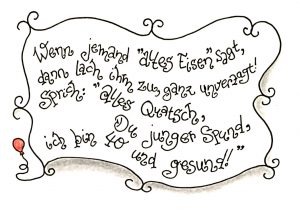 Wenn jemand "altes Eisen" sagt,
dann lach ihm zu, ganz unverzagt!
Sprich: "Alles Quatsch,
Du junger Spund,
ich bin 40 und gesund!!"